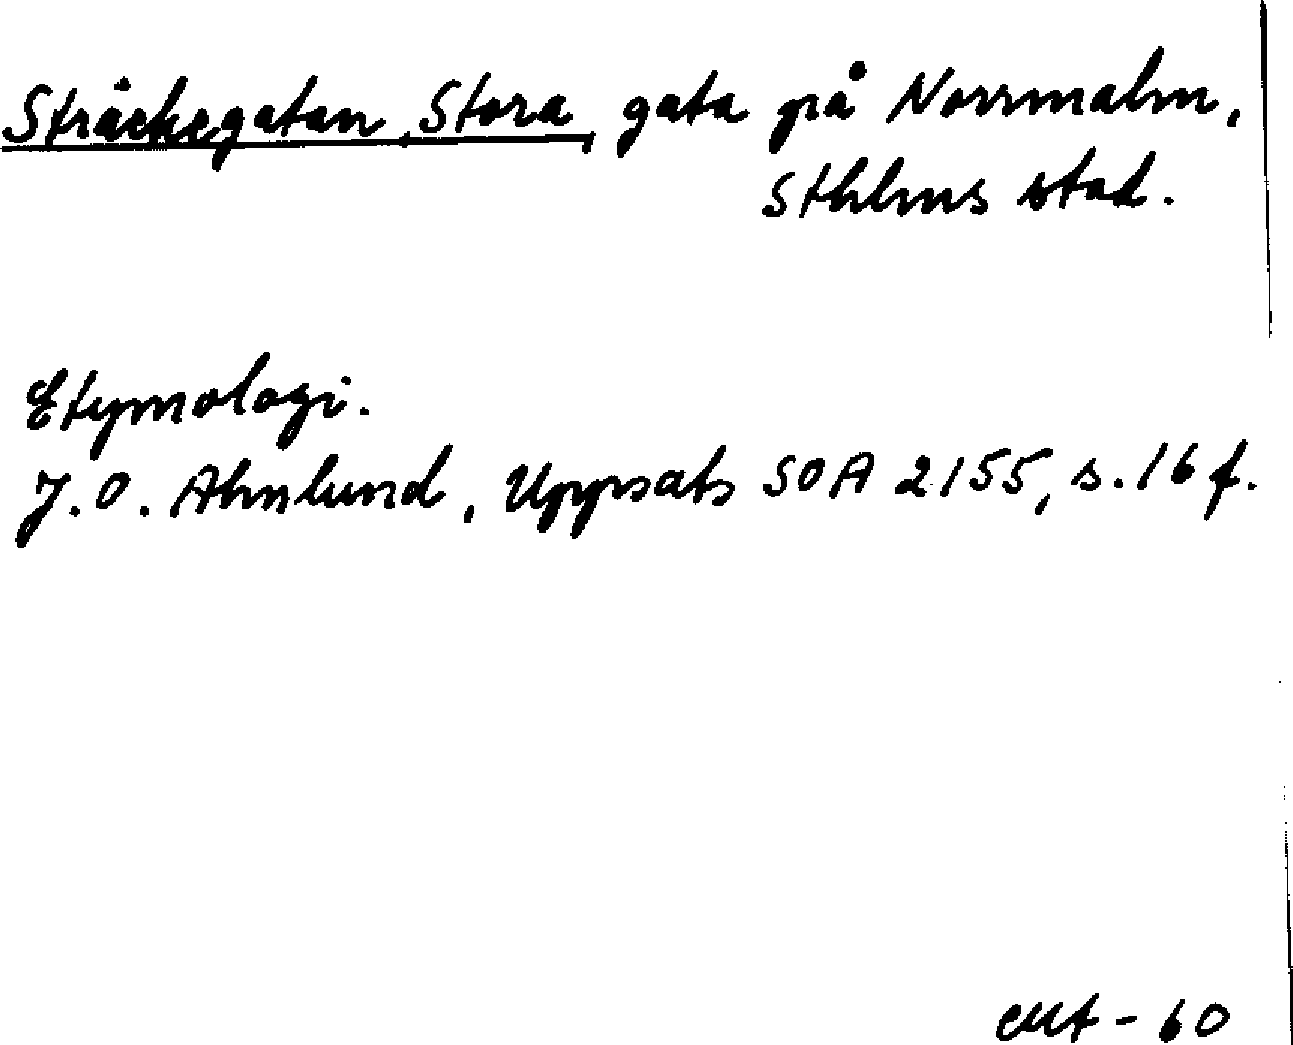 Stråckegatan, Stora, gata på Norrmalm,
Sthlms stad.
Etymologi.
J.O. Ahnlund, Uppsats SOA 2155, s.16 f.
-60